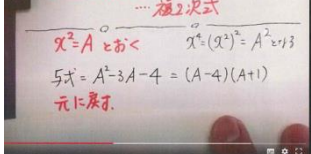 … 複2次式
x²=A とおく x⁴=(x²)²=A² となる
与式 = A²-3A-4 = (A-4)(A+1)
元に戻す.